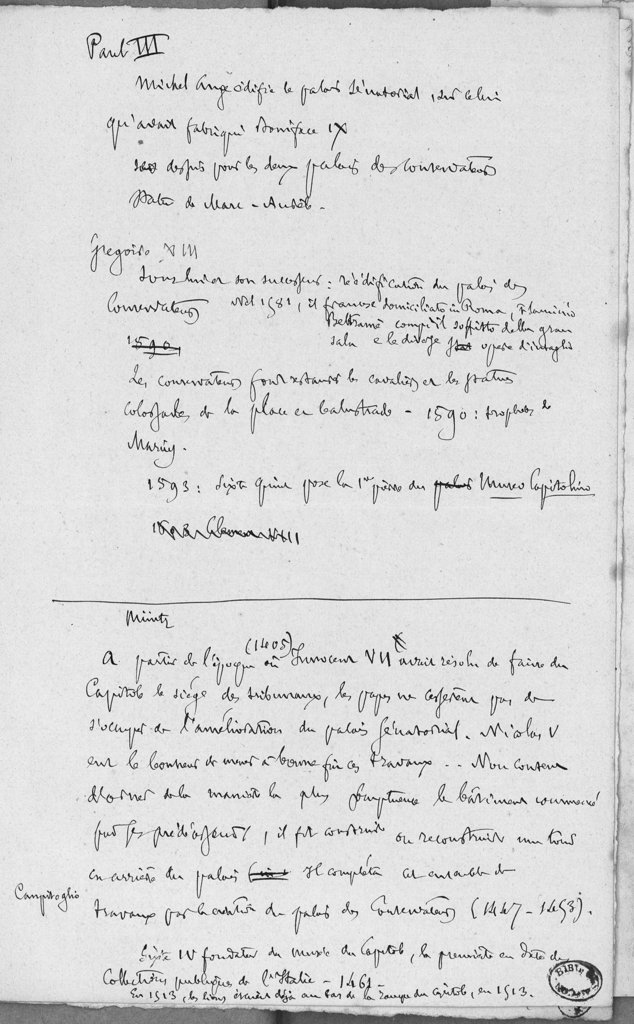 Paul III
Michel Ange édifie le palais Sénatorial, sur celui
qu'avait fabriqué Boniface IX
dessins pour les deux palais des Conservateurs
Statue de Marc-Aurèle.
Grégoire XIII
son successeur : réédification du palais des
Conservateurs nel 1581, il francese domiciliato in Roma, Flaminio
Boulanger compi il soffitto della gran
sala e le diverse opere d'intaglio
1590
Les conservateurs font restaurer les cavaliers et les statues
colossales de la place en balustrade - 1590 : trophées de
Marius.
1593 : Sixte Quint pose la 1re pierre du palais Museo Capitolino
Müntz
A partir de l'époque où (1405) Innocent VII avait résolu de faire du
Capitole le siège des tribunaux, les papes ne cessèrent pas de
s'occuper de l'amélioration du palais Sénatorial. Nicolas V
eut le bonheur de mener à bonne fin ces travaux .. Non content
d'orner de la manière la plus somptueuse le bâtiment commencé
par ses prédécesseurs, il fit construire ou reconstruire une tour
en arrière du palais Il compléta cet ensemble de
Campidoglio
travaux par la création du palais des Conservateurs (1447-1453).
Sixte IV fondateur du musée du Capitole, la première en date des
Collections publiques de l'Italie - 1461 -
En 1513, les lions étaient déjà au bas de la rampe du Capitole, en 1513.